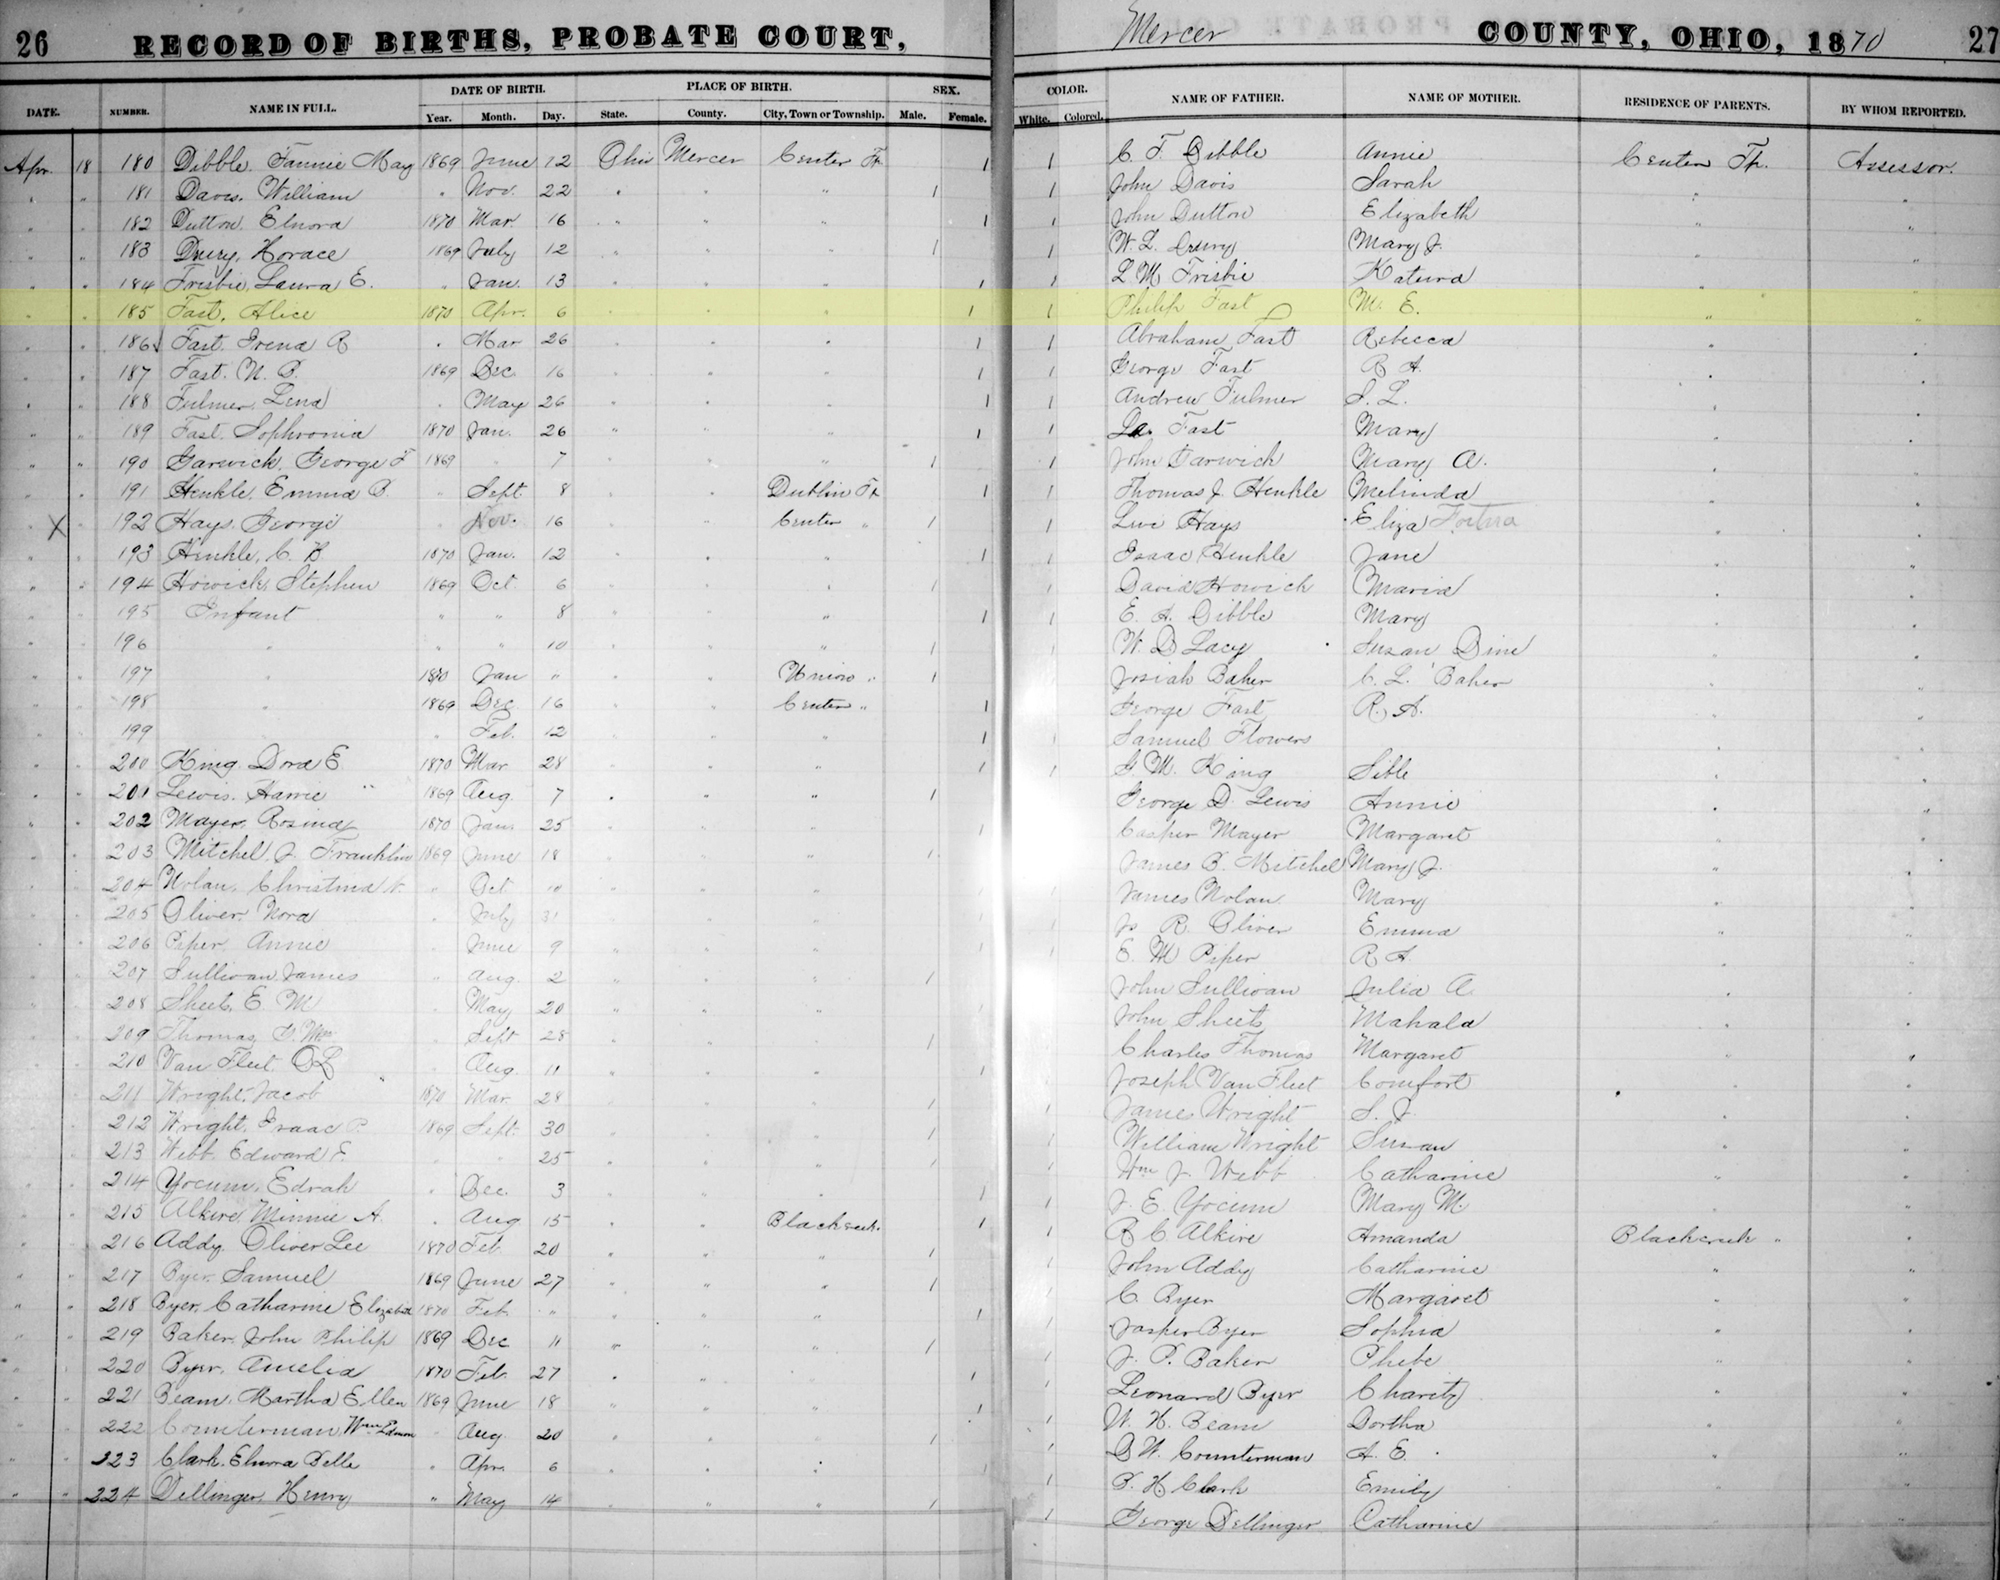 26 RECORD OF BIRTHS, PROBATE COURT, Mercer COUNTY, OHIO, 1870 27
DATE. NUMBER. NAME IN FULL. DATE OF BIRTH. PLACE OF BIRTH. SEX. COLOR. NAME OF FATHER. NAME OF MOTHER. RESIDENCE OF PARENTS. BY WHOM REPORTED.
Year. Month. Day. State. County. City, Town or Township. Male. Female. White. Colored.
Apr. 18 180 Dibble, Fannie May 1869 June 12 Ohio Mercer Center Tp. 1 1 C. F. Dibble Annie Center Tp. Assessor.
" " 181 Davis, William " Nov. 22 " " " 1 1 John Davis Sarah " "
" " 182 Dutton, Elnora 1870 Mar. 16 " " " 1 1 John Dutton Elizabeth " "
" " 183 Drury, Horace 1869 July 12 " " " 1 1 W. L. Drury Mary J. " "
" " 184 Frisbie, Laura E. " Jan. 13 " " " 1 1 L. M. Frisbie Katura " "
" " 185 Fast, Alice 1870 Apr. 6 " " " 1 1 Philip Fast M. E. " "
" " 186 Fast, Irena R " Mar 26 " " " 1 1 Abraham Fast Rebecca " "
" " 187 Fast, N. B. 1869 Dec. 16 " " " 1 1 George Fast R A. " "
" " 188 Fulmer, Lena " May 26 " " " 1 1 Andrew Fulmer S. L. " "
" " 189 Fast, Sophronia 1870 Jan. 26 " " " 1 1 Fast Mary " "
" " 190 Garwick, George F 1869 " 7 " " " 1 1 John Garwick Mary A. " "
" " 191 Henkle, Emma B. " Sept 8 " " Dublin Tp 1 1 Thomas J. Henkle Melinda " "
" X " 192 Hays, George " Nov. 16 " " Center " 1 1 Levi Hays Eliza " "
" " 193 Henkle, C. B 1870 Jan. 12 " " " 1 1 Isaac Henkle Jane " "
" " 194 Howick, Stephen 1869 Oct. 6 " " " 1 1 David Howick Maria " "
" " 195 Infant " " 8 " " " 1 1 E. A. Dibble Mary " "
" " 196 " " " 10 " " " 1 W. D Lacy Susan Dine " "
" " 197 " 1870 Jan " " " Union " 1 Josiah Baker C. L. Baker " "
" " 198 " 1869 Dec. 16 " " Center " 1 George Fast R. A. " "
" " 199 " Feb. 12 " " " 1 Samuel Flowers " "
" " 200 King, Dora E. 1870 Mar. 28 " " " 1 1 G. M. King Sible " "
" " 201 Lewis, Harrie 1869 Aug. 7 " " " 1 George D. Lewis Annie " "
" " 202 Mayer, Rosina 1870 Jan. 25 " " " 1 Casper Mayer Margaret " "
" " 203 Mitchel, J. Franklin 1869 June 18 " " " 1 James B. Mitchel Mary J. " "
" " 204 Nolan, Christina " Oct 10 " " " James Nolan Mary " "
" " 205 Oliver, Nora " July 31 " " " R. Oliver Emma " "
" " 206 Piper, Annie " June 9 " " " E. M Piper R A " "
" " 207 Sullivan, James " Aug. 2 " " " 1 John Sullivan Julia A. " "
" " 208 Sheets, E. M " May 20 " " " John Sheets Mahala " "
" " 209 Thomas, " Sept 28 " " " 1 Charles Thomas Margaret " "
" " 210 Van Fleet, " Aug. 11 " " " 1 Joseph Van Fleet Comfort " "
" " 211 Wright, Jacob 1870 Mar. 28 " " " 1 James Wright S. J. " "
" " 212 Wright, Isaac P. 1869 Sept. 30 " " " 1 William Wright Susan " "
" " 213 Webb, Edward E. " " 25 " " " 1 Wm J. Webb Catharine " "
" " 214 Yocum, Edrah " Dec. 3 " " " 1 J. E. Yocum Mary M. " "
" " 215 Alkire, Minnie A. " Aug 15 " " Blackcreek. 1 R C. Alkire Amanda Blackcreek " "
" " 216 Addy, Oliver Lee 1870 Feb. 20 " " " 1 John Addy Catharine " "
" " 217 Byer, Samuel 1869 June 27 " " " 1 C. Byer Margaret " "
" " 218 Byer, Catharine Elizabeth 1870 Feb. " " " " 1 Jasper Byer Sophia " "
" " 219 Baker, John Philip 1869 Dec 11 " " " 1 J. P. Baker Phebe " "
" " 220 Byer, Amelia 1870 Feb. 27 " " " 1 Leonard Byer Charity " "
" " 221 Beam, Martha Ellen 1869 June 18 " " " 1 W. H. Beam Dortha " "
" " 222 Counterman, Wm " Aug. 20 " " " 1 D W. Counterman A. E. " "
" " 223 Clark, Elnora Belle " Apr. 6 " " " 1 P. H. Clark Emily " "
" " 224 Dellinger, Henry " May 14 " " " 1 George Dellinger Catharine " "